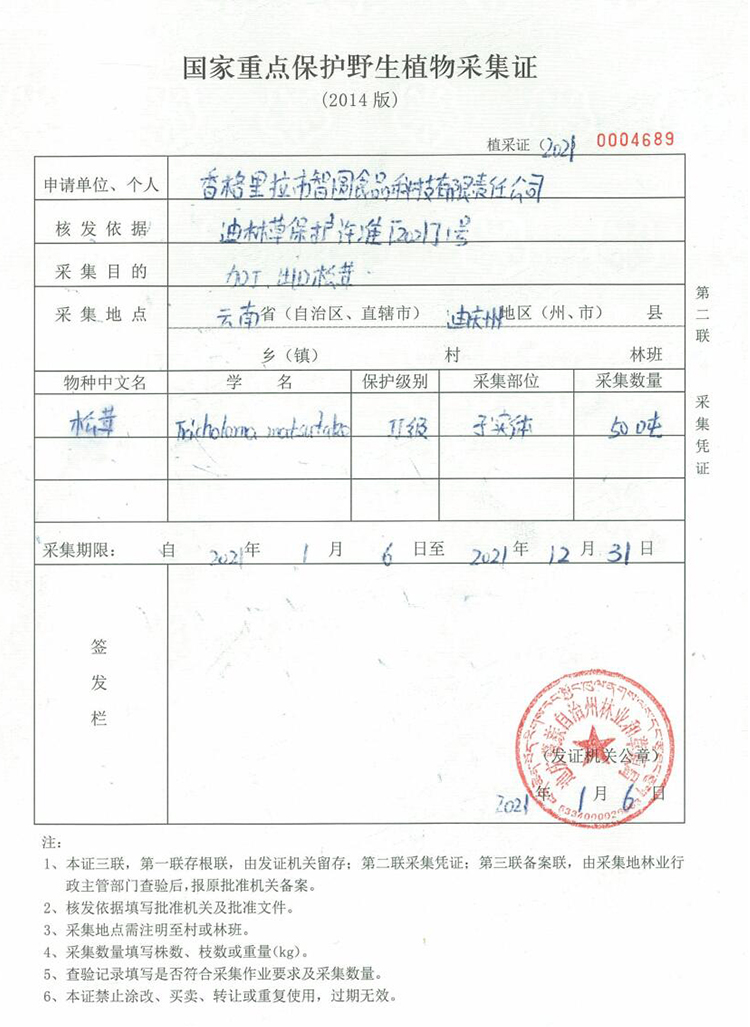 国家重点保护野生植物采集证
(2014 版)
植采证（2021 0004689
申请单位、个人 香格里拉市智圆食品科技有限责任公司
核发依据 迪林草保护许准〔2021〕1号
采集目的 加工 出口松茸
采集地点 云南省（自治区、直辖市） 迪庆州地区（州、市） 县
乡（镇） 村 林班
物种中文名 学名 保护级别 采集部位 采集数量
松茸 Tricholoma matsutake II级 子实体 50吨
采集期限： 自 2021年 1月 6日至 2021年 12月31日
签发栏
迪庆藏族自治州林业和草原局
（发证机关公章）
2021年 1月 6日
第二联 采集凭证
注：
1、本证三联，第一联存根联，由发证机关留存；第二联采集凭证；第三联备案联，由采集地林业行
政主管部门查验后，报原批准机关备案。
2、核发依据填写批准机关及批准文件。
3、采集地点需注明至村或林班。
4、采集数量填写株数、枝数或重量(kg)。
5、查验记录填写是否符合采集作业要求及采集数量。
6、本证禁止涂改、买卖、转让或重复使用，过期无效。